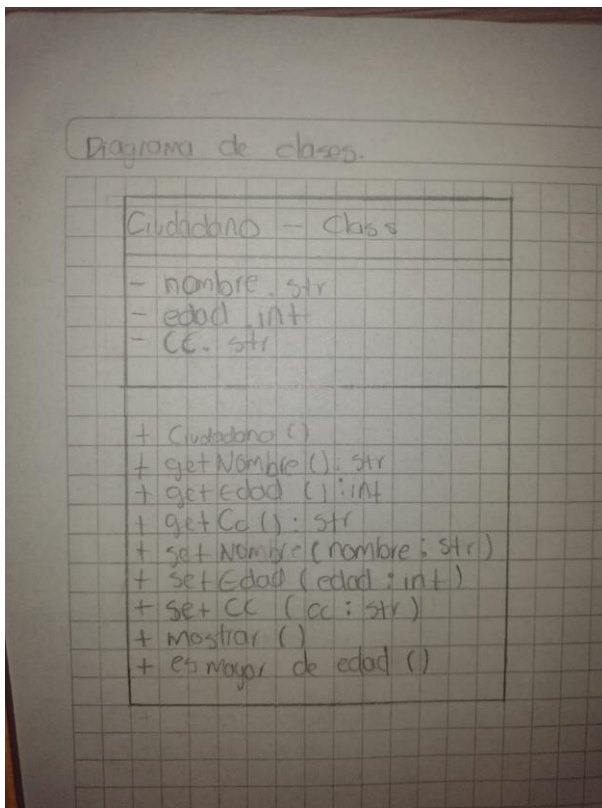 Diagrama de clases.
Ciudadano - Class
- nombre. str
- edad. int
- CC. str
+ Ciudadano ()
+ getNombre (). str
+ getEdad () : int
+ getCc () : str
+ setNombre (nombre : str)
+ setEdad (edad : int)
+ set CC (cc : str)
+ mostrar ()
+ es mayor de edad ()